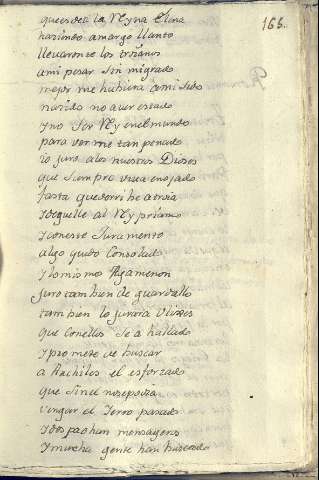 166.
quees de la Reyna Elena
haziendo amargo llanto
llevaronte los troianos
a mi pesar sin mi grado
mejor me hubiera sido
no aver estado
y no ser Rey en el mundo
para verme tan penado
io juro a los nuestros Dioses
que siempre viva enojado
fasta que derribe a troia
y deguelle al Rey priamo
y con este Juramento
algo quedo Consolado
y lo mismo Agamenon
juro tambien de guardallo
tambien lo jurara Ulixes
que Conellos se a hallado
y promete de buscar
a Archiles el esforzado
que sin el no se podia
vengar el Yerro pasado
y despachan mensageros
y mucha gente han buscado